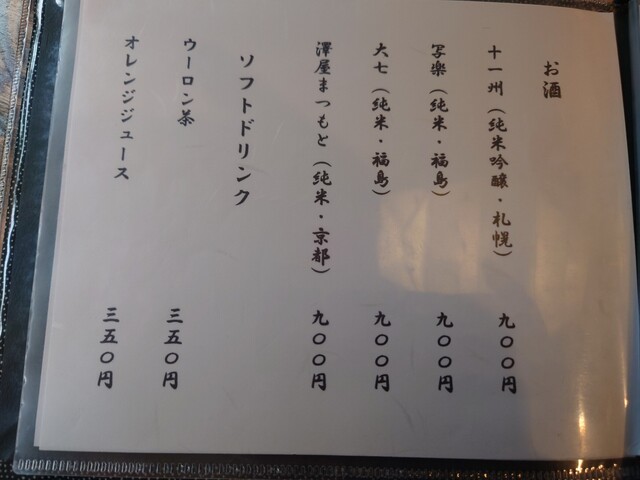 お酒
十一州（純米吟醸・札幌） 九〇〇円
写楽（純米・福島） 九〇〇円
大七（純米・福島） 九〇〇円
澤屋まつもと（純米・京都） 九〇〇円
ソフトドリンク
ウーロン茶 三五〇円
オレンジジュース 三五〇円